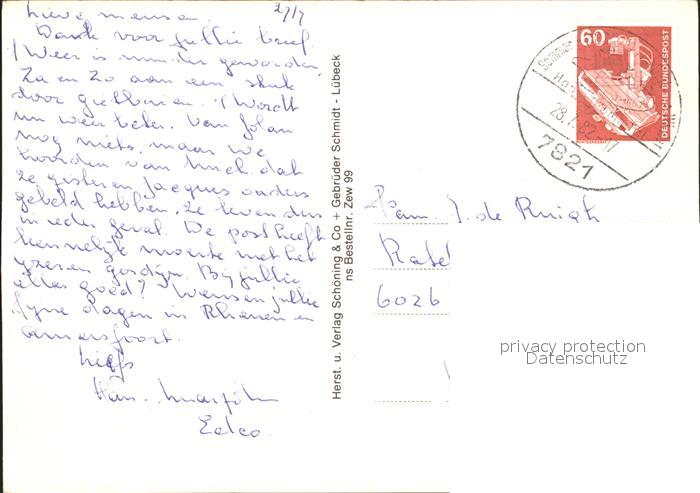 Lieve mensen
27/7
Dank voor jullie brief.
't Weer is minder geworden,
Za en Zo aan een stuk
door geregend. 't Wordt
nu weer beter. Van Johan
nog niets, maar we
hoorden van dat
ze gisteren Jacques ouders
gebeld hebben. Ze leven dus
in ieder geval. De post heeft
kennelijk moeite met het
yzeren gordijn. Bij jullie
alles goed? Wensen jullie
fyne dagen in Rhenen en
Amersfoort.
Liefs
Han
Eelco
Herst. u. Verlag Schöning & Co + Gebrüder Schmidt - Lübeck
ns Bestellnr. Zew 99
60
DEUTSCHE BUNDESPOST
28. 82-17
7821
Fam. J. de Kruijk
Ratel
6026
privacy protection
Datenschutz